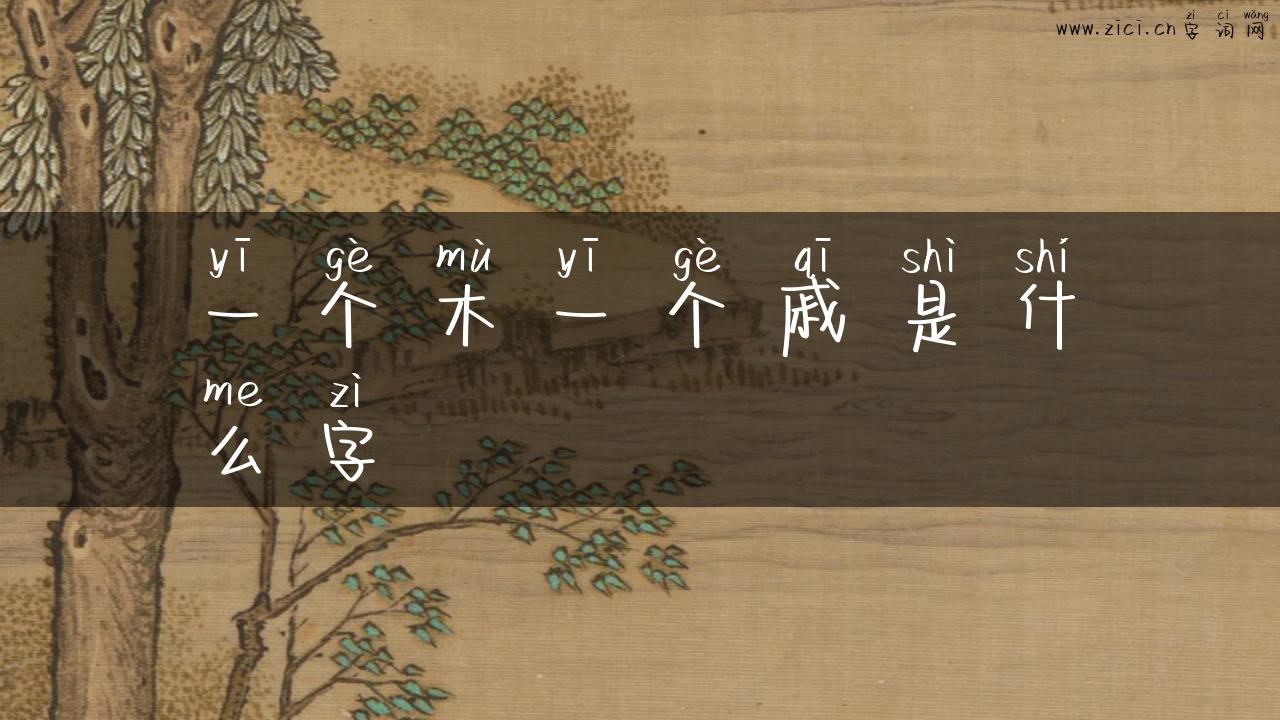 zì cí wǎng
www.zici.cn 字词网
yī gè mù yī gè qī shì shí
一个木一个戚是什
me zì
么字